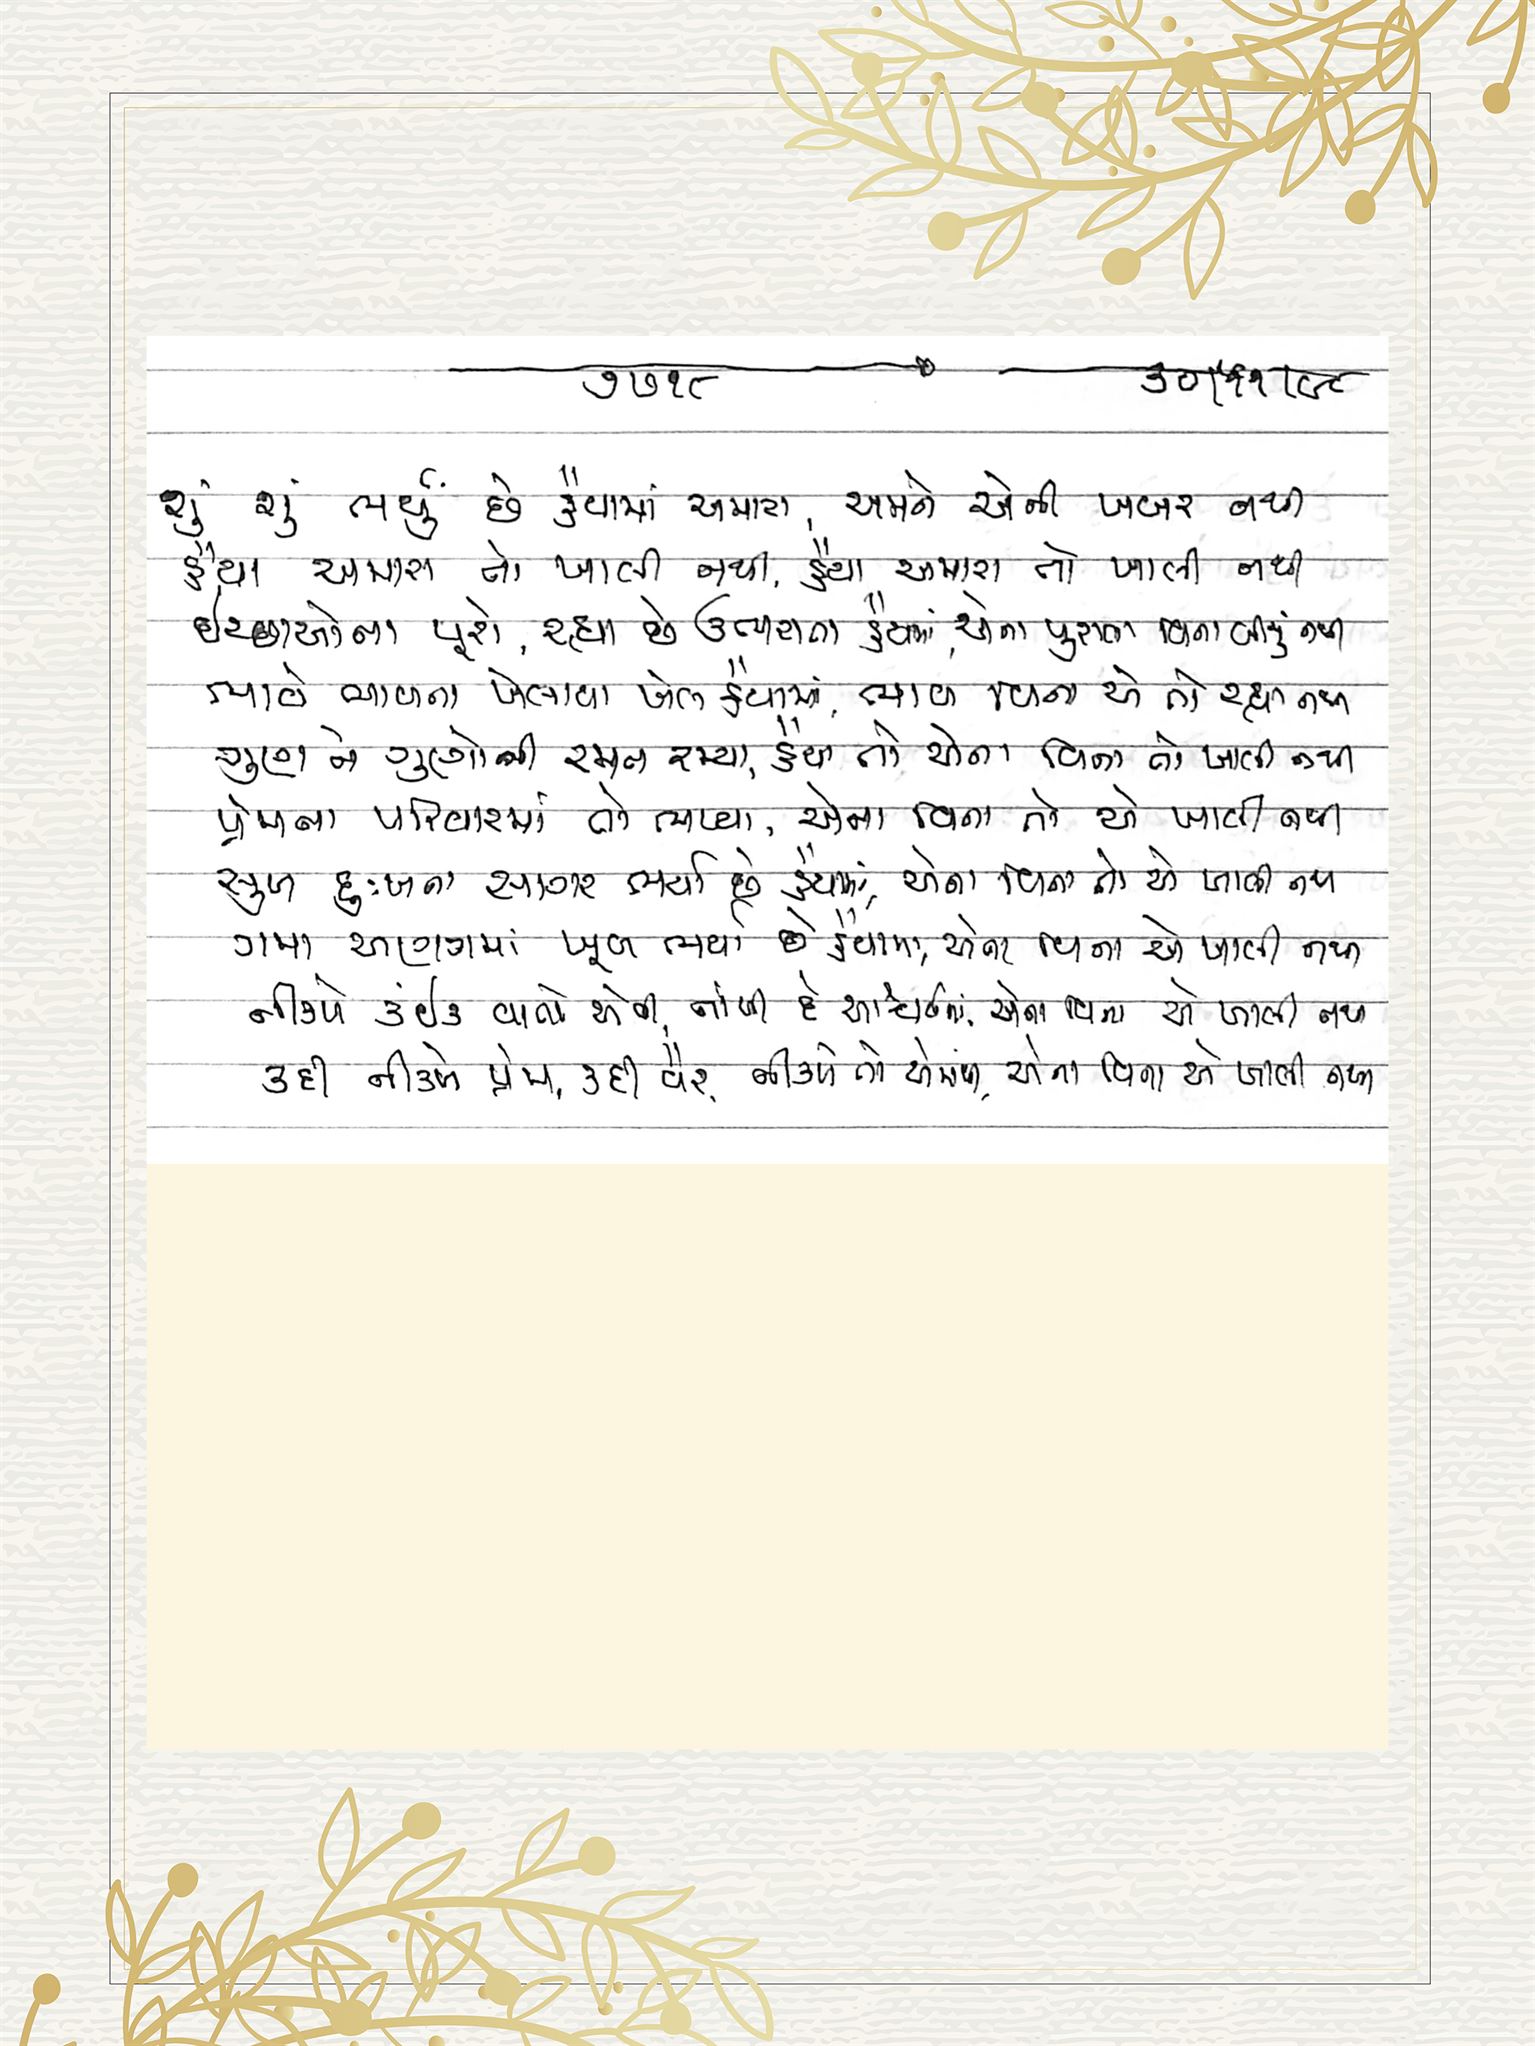 ૭૭૧૮ ૩૦/૧૧/૯૮
શું શું ભર્યું છે હૈયામાં અમારા, અમને એની ખબર નથી
હૈયા અમારા તો ખાલી નથી, હૈયા અમારા તો ખાલી નથી
ઈચ્છાઓના પૂરો, રહ્યા છે ઉભરાતા હૈયામાં, એના પુરાવા વિના બીજું નથી
ભાવે ભાવના ખેલાયા ખેલ હૈયામાં, ભાવ વિના એ તો રહ્યા નથી
ગુણે ને ગુણોની રમત રમ્યા, હૈયા તો એના વિના તો ખાલી નથી
પ્રેમના પરિવારમાં તો ભમ્યા, એના વિના તો એ ખાલી નથી
સુખ દુઃખના સાગર ભર્યા છે હૈયામાં, એના વિના તો એ ખાલી નથી
ગમા અણગમાં ખૂબ ભર્યા છે હૈયામાં, એના વિના એ ખાલી નથી
નીકળે કંઈક વાતો એવી, નાંખી દે આશ્ચર્યમાં, એના વિના એ ખાલી નથી
કદી નીકળે પ્રેમ, કદી વૈર, નીકળે તો એમાંથી, એના વિના એ ખાલી નથી